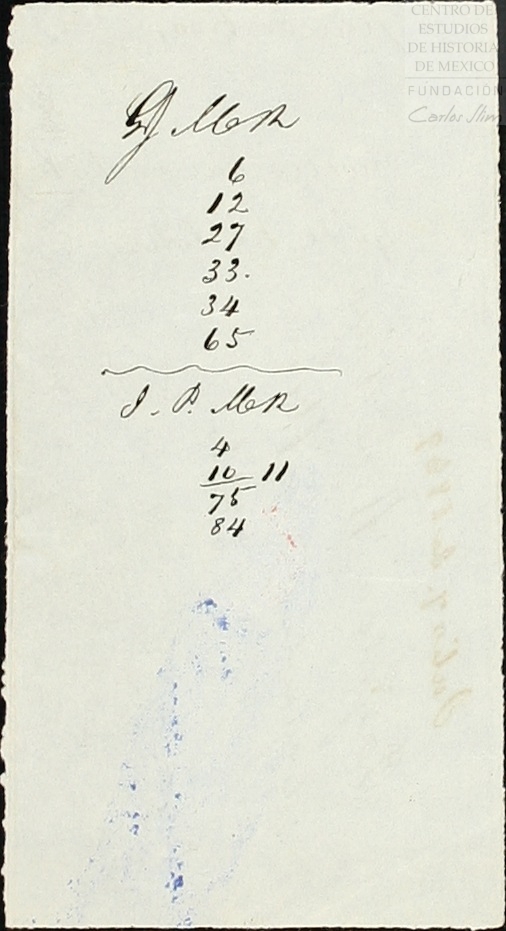 CENTRO DE
ESTUDIOS
DE HISTORIA
DE MEXICO
FUNDACIÓN
Carlos Slim
6
12
27
33.
34
65
J. P.
4
10 11
75
84